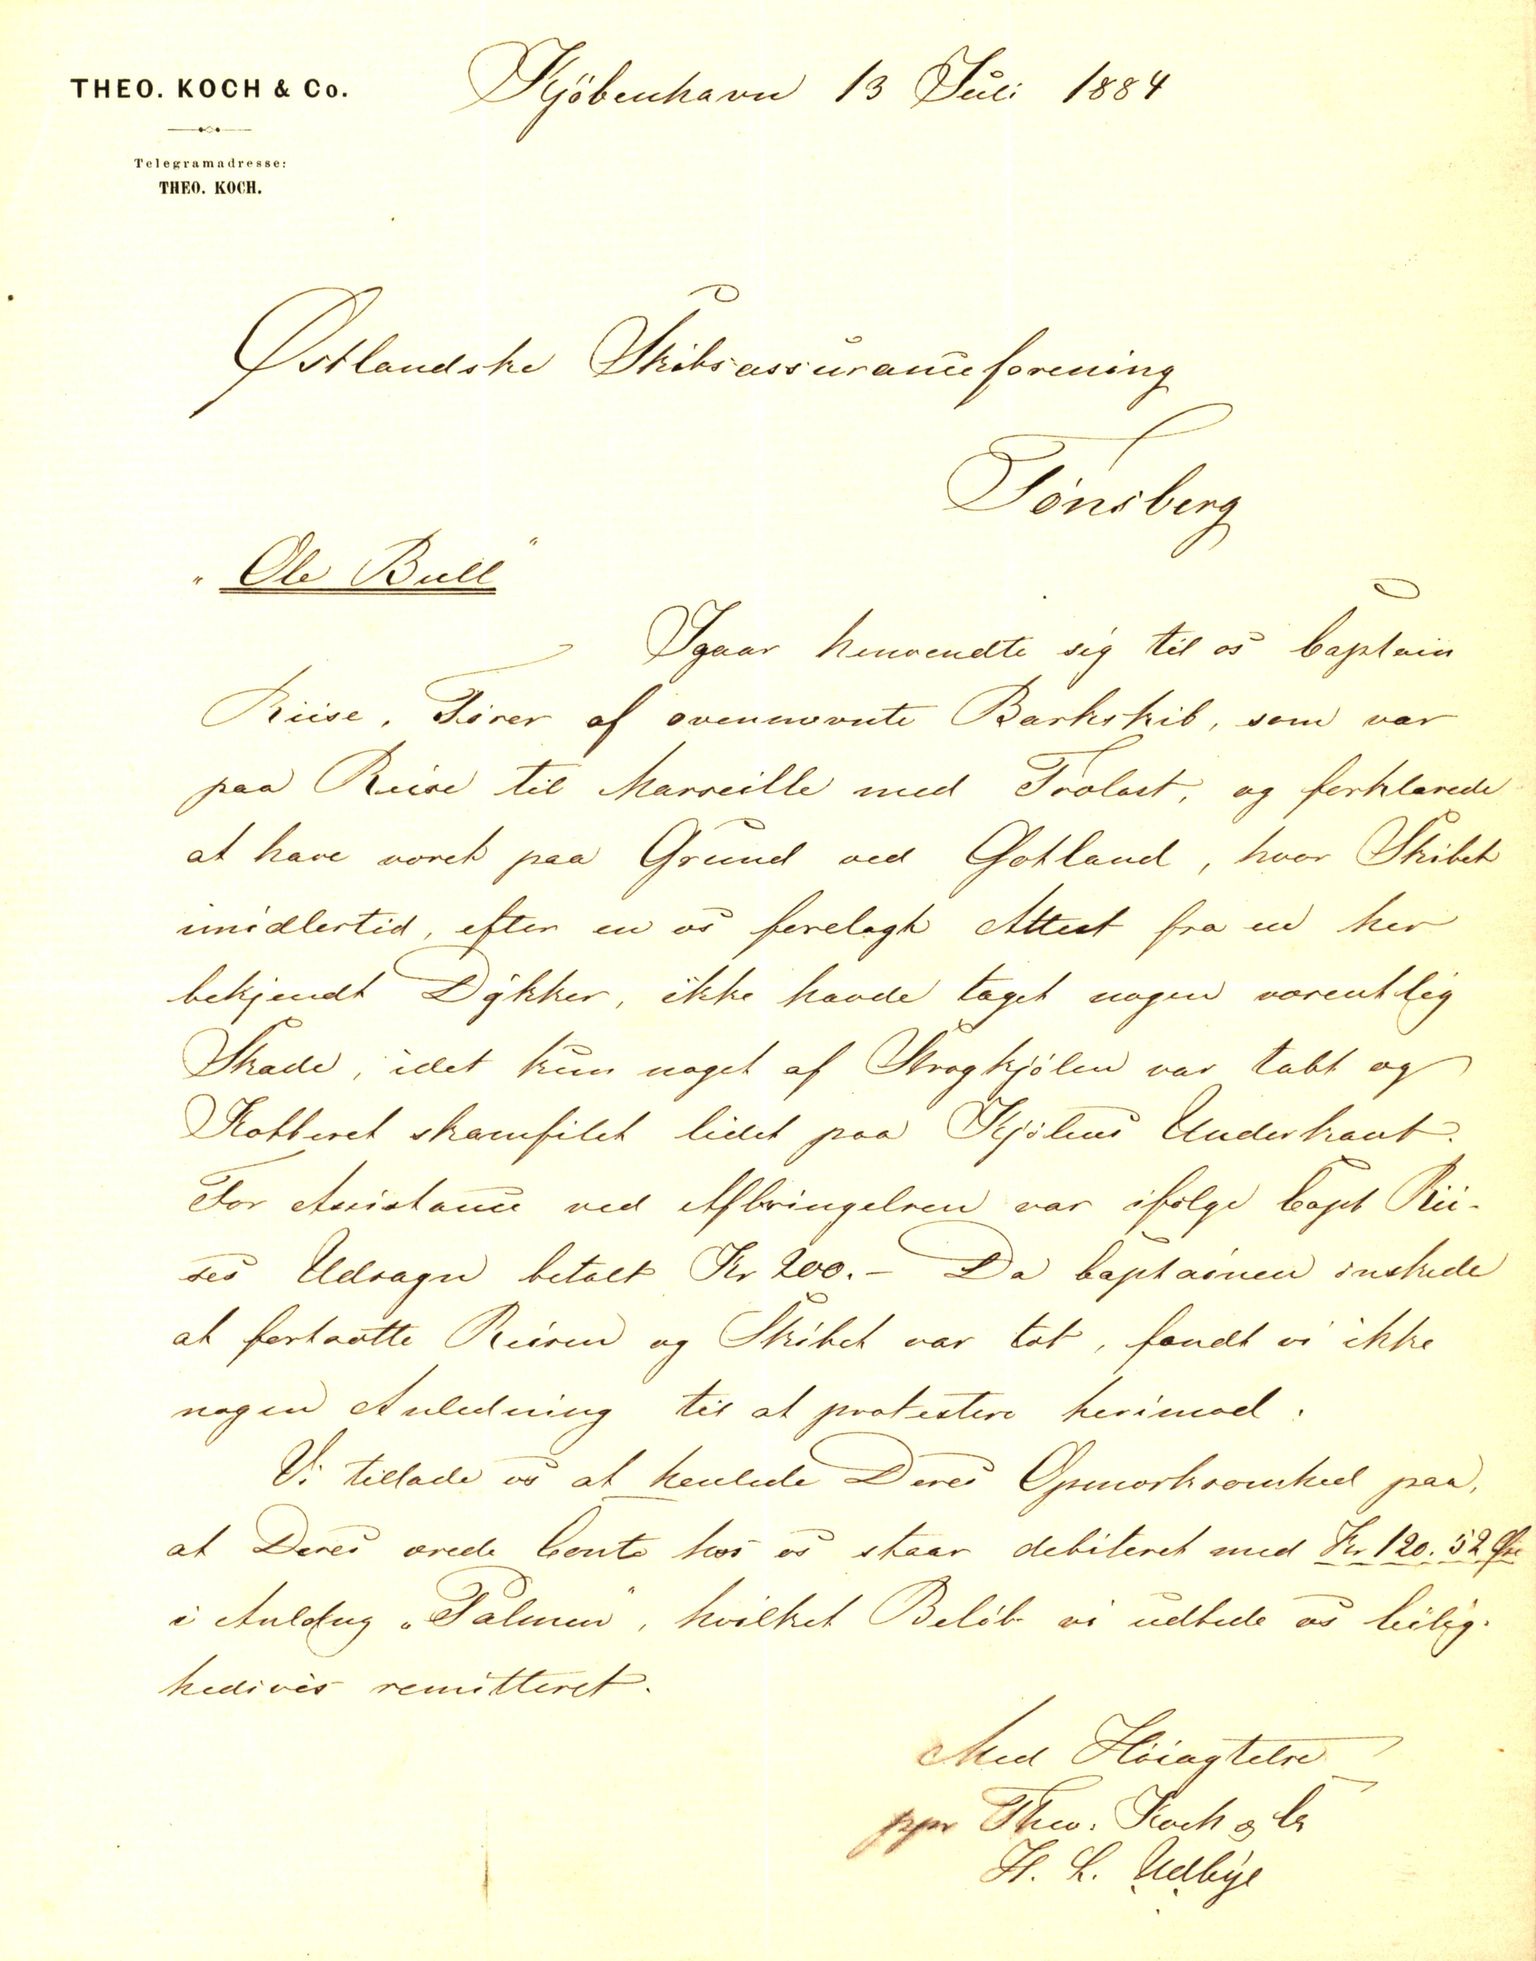 THEO. KOCH & Co.
Kjöbenhavn 13 Juli 1884
Telegramadresse:
THEO. KOCH.
Østlandske Skibsassuranceforening
Tönsberg
"Ole Bull"
Igaar henvendte sig til os Captain
Riise, Förer af ovennævnte Barkskib, som var
paa Reise til Marseille med Trælast, og forklarede
at have været paa Grund ved Gotland, hvor Skibet
imidlertid, efter en os forelagt Attest fra en her
bekjendt Dykker, ikke havde taget nogen væsentlig
Skade, idet kun noget af Straakjölen var tabt og
Kobberet skamfilet lidt paa Kjölens Underkant.
For Assistance ved Afbringelsen var ifölge Capt Rii-
ses Udsagn betalt Kr 200.- Da Captainen önskede
at fortsætte Reisen og Skibet var tæt, fandt vi ikke
nogen Anledning til at protestere herimod.
Vi tillade os at henlede Deres Opmærksomhed paa,
at Deres ærede Conto hos os staar debiteret med Kr 120. 52 Øre
i Anldng "Palmen", hvilket Belöb vi udbede os leilig-
hedsvis remitteret.
Med Höiagtelse
ppr Theo. Koch & Co
H. L. Udbye